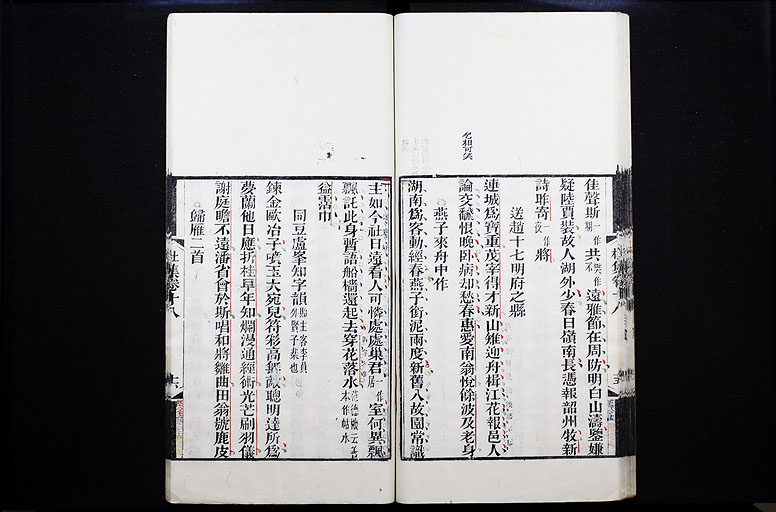 佳聲斯一作期共一作不遠雅節在周防明白山濤鑒嫌
疑陸賈裝故人湖外少春日嶺南長憑報韶州牧新
詩昨寄一作夜將
送趙十七明府之縣
連城爲寶重茂宰得才新山雉迎舟楫江花報邑人
論交翻恨晚卧病却愁春惠愛南翁悅餘波及老身
燕子來舟中作
湖南爲客動經春燕子銜泥兩度新舊入故園常識
主如今社日遠看人可憐處處巢君一作居室何異飄
飄託此身暫語船檣還起去穿花落水
益霑巾
同豆盧峯知字韻
鍊金歐冶子噴玉大宛兒符彩高無敵聰明達所爲
夢蘭他日應折桂早年知爛漫通經術光芒刷羽儀
謝庭瞻不遠潘省會於斯唱和將雛曲田翁號鹿皮
歸雁二首
杜集卷十八